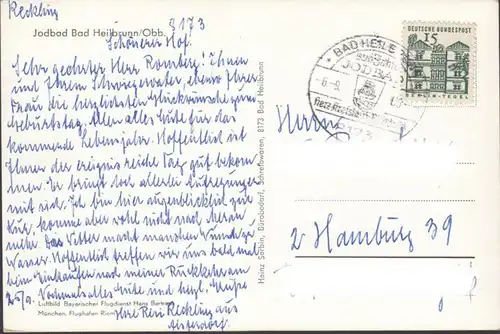 Reckling
8173
Jodbad Bad Heilbrunn/Obb.
Schönerer Hof.
Sehr geehrter Herr Romberg! Ihnen
und Ihrem Schwiegervater, ebenso Ihrer
Frau die herzlichsten Glückwünsche zum
Geburtstag. Alles alles Gute für das
kommende Lebensjahr. Hoffentlich ist
Ihnen der ereignisreiche Tag gut bekom
men. Er bringt doch allerlei Aufregungen
mit sich. Ich bin hier augenblicklich zur
Kur, komme aber wohl nicht nach Meran
mehr. Das Wetter macht manchen
Wasser. Hoffentlich treffen wir uns bald mal
beim Einkaufen nach meiner Rückkehr
Nochmals alles Gute und herzl. Grüße
Ihre Resi Reckling aus
Luftbild Bayerischer Flugdienst Hans
München, Flughafen Riem
Heinz Serbin, Bürobedarf, Schreibwaren, 8173 Bad Heilbrunn
BAD HEILB
JODBAD
Herz Kreislauf
DEUTSCHE BUNDESPOST
15
TEGEL
Herrn
2 Hamburg 39